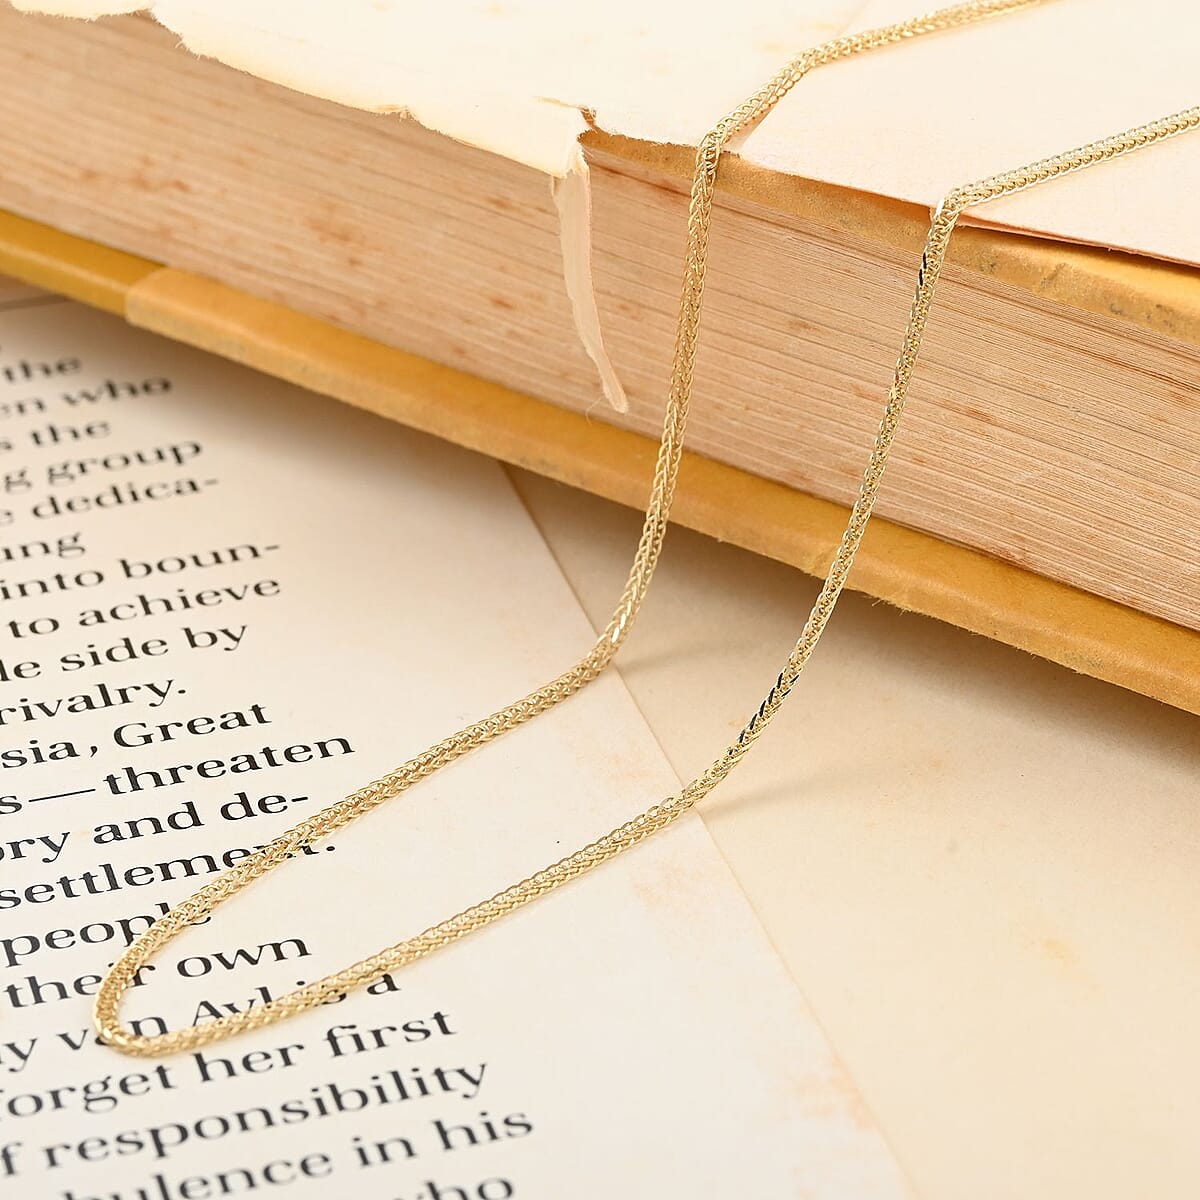 the
en who
s the
g group
e dedica-
ung
into boun-
to achieve
le side by
rivalry.
sia, Great
s—threaten
ory and de-
settlement.
people
their own
y van Avl is a
forget her first
f responsibility
bulence in his
who